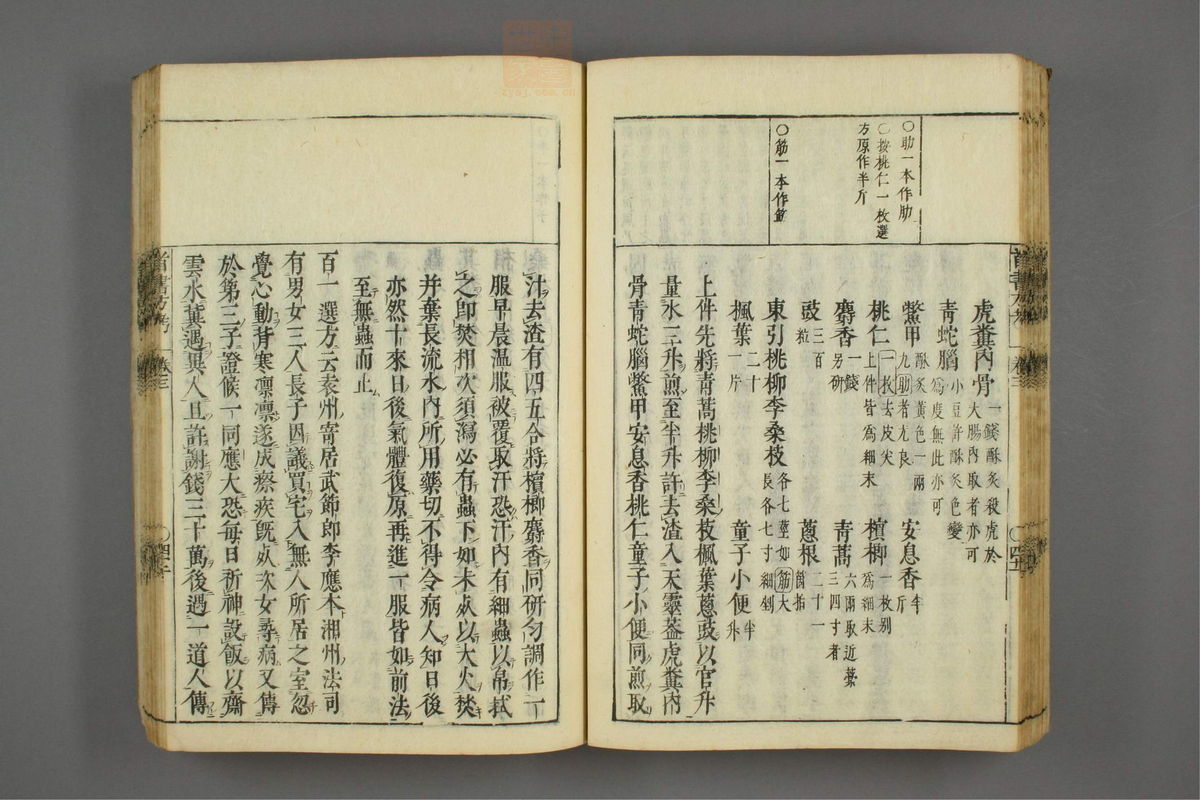 〇肋一本作肋
〇按桃仁一枚選
方原作半斤
〇筋一本作
虎糞內骨 一錢酥炙殺虎於大腸內取者亦可
青蛇腦 小豆許酥炙色變為度無此亦可
鱉甲 酥炙黃色一兩九肋者尤良
安息香 半斤
桃仁 一枚去皮尖上件皆為細末
檳榔 一枚別為細末
麝香 一錢另研
青蒿 六兩取近藁三四寸者
豉 三百粒
蔥根 二十一箇拍
東引桃柳李桑枝 各七莖如筋大長各七寸細剉
楓葉 二十一片
童子小便 半升
上件先將青蒿桃柳李桑枝楓葉蔥豉以官升
量水三升煎至半升許去渣入天靈蓋虎糞內
骨青蛇腦鱉甲安息香桃仁童子小便同煎取
汁去渣有四五合將檳榔麝香同研勻調作一
服早晨溫服被覆取汗恐汗內有細蟲以帛拭
之卽焚相次須瀉必有蟲下如未死以大火焚
并棄長流水內所用藥切不得令病人知日後
亦然十來日後氣體復原再進一服皆如前法
至無蟲而止
百一選方云袁州寄居武節郎李應木湘州法司
有男女三人長子因議買宅入無人所居之室忽
覺心動背寒凜凜遂成瘵疾旣死次女尋病又傳
於第三子證候一同應大恐每日祈神設飯以齋
雲水冀遇異人且許謝錢三十萬後遇一道人傳